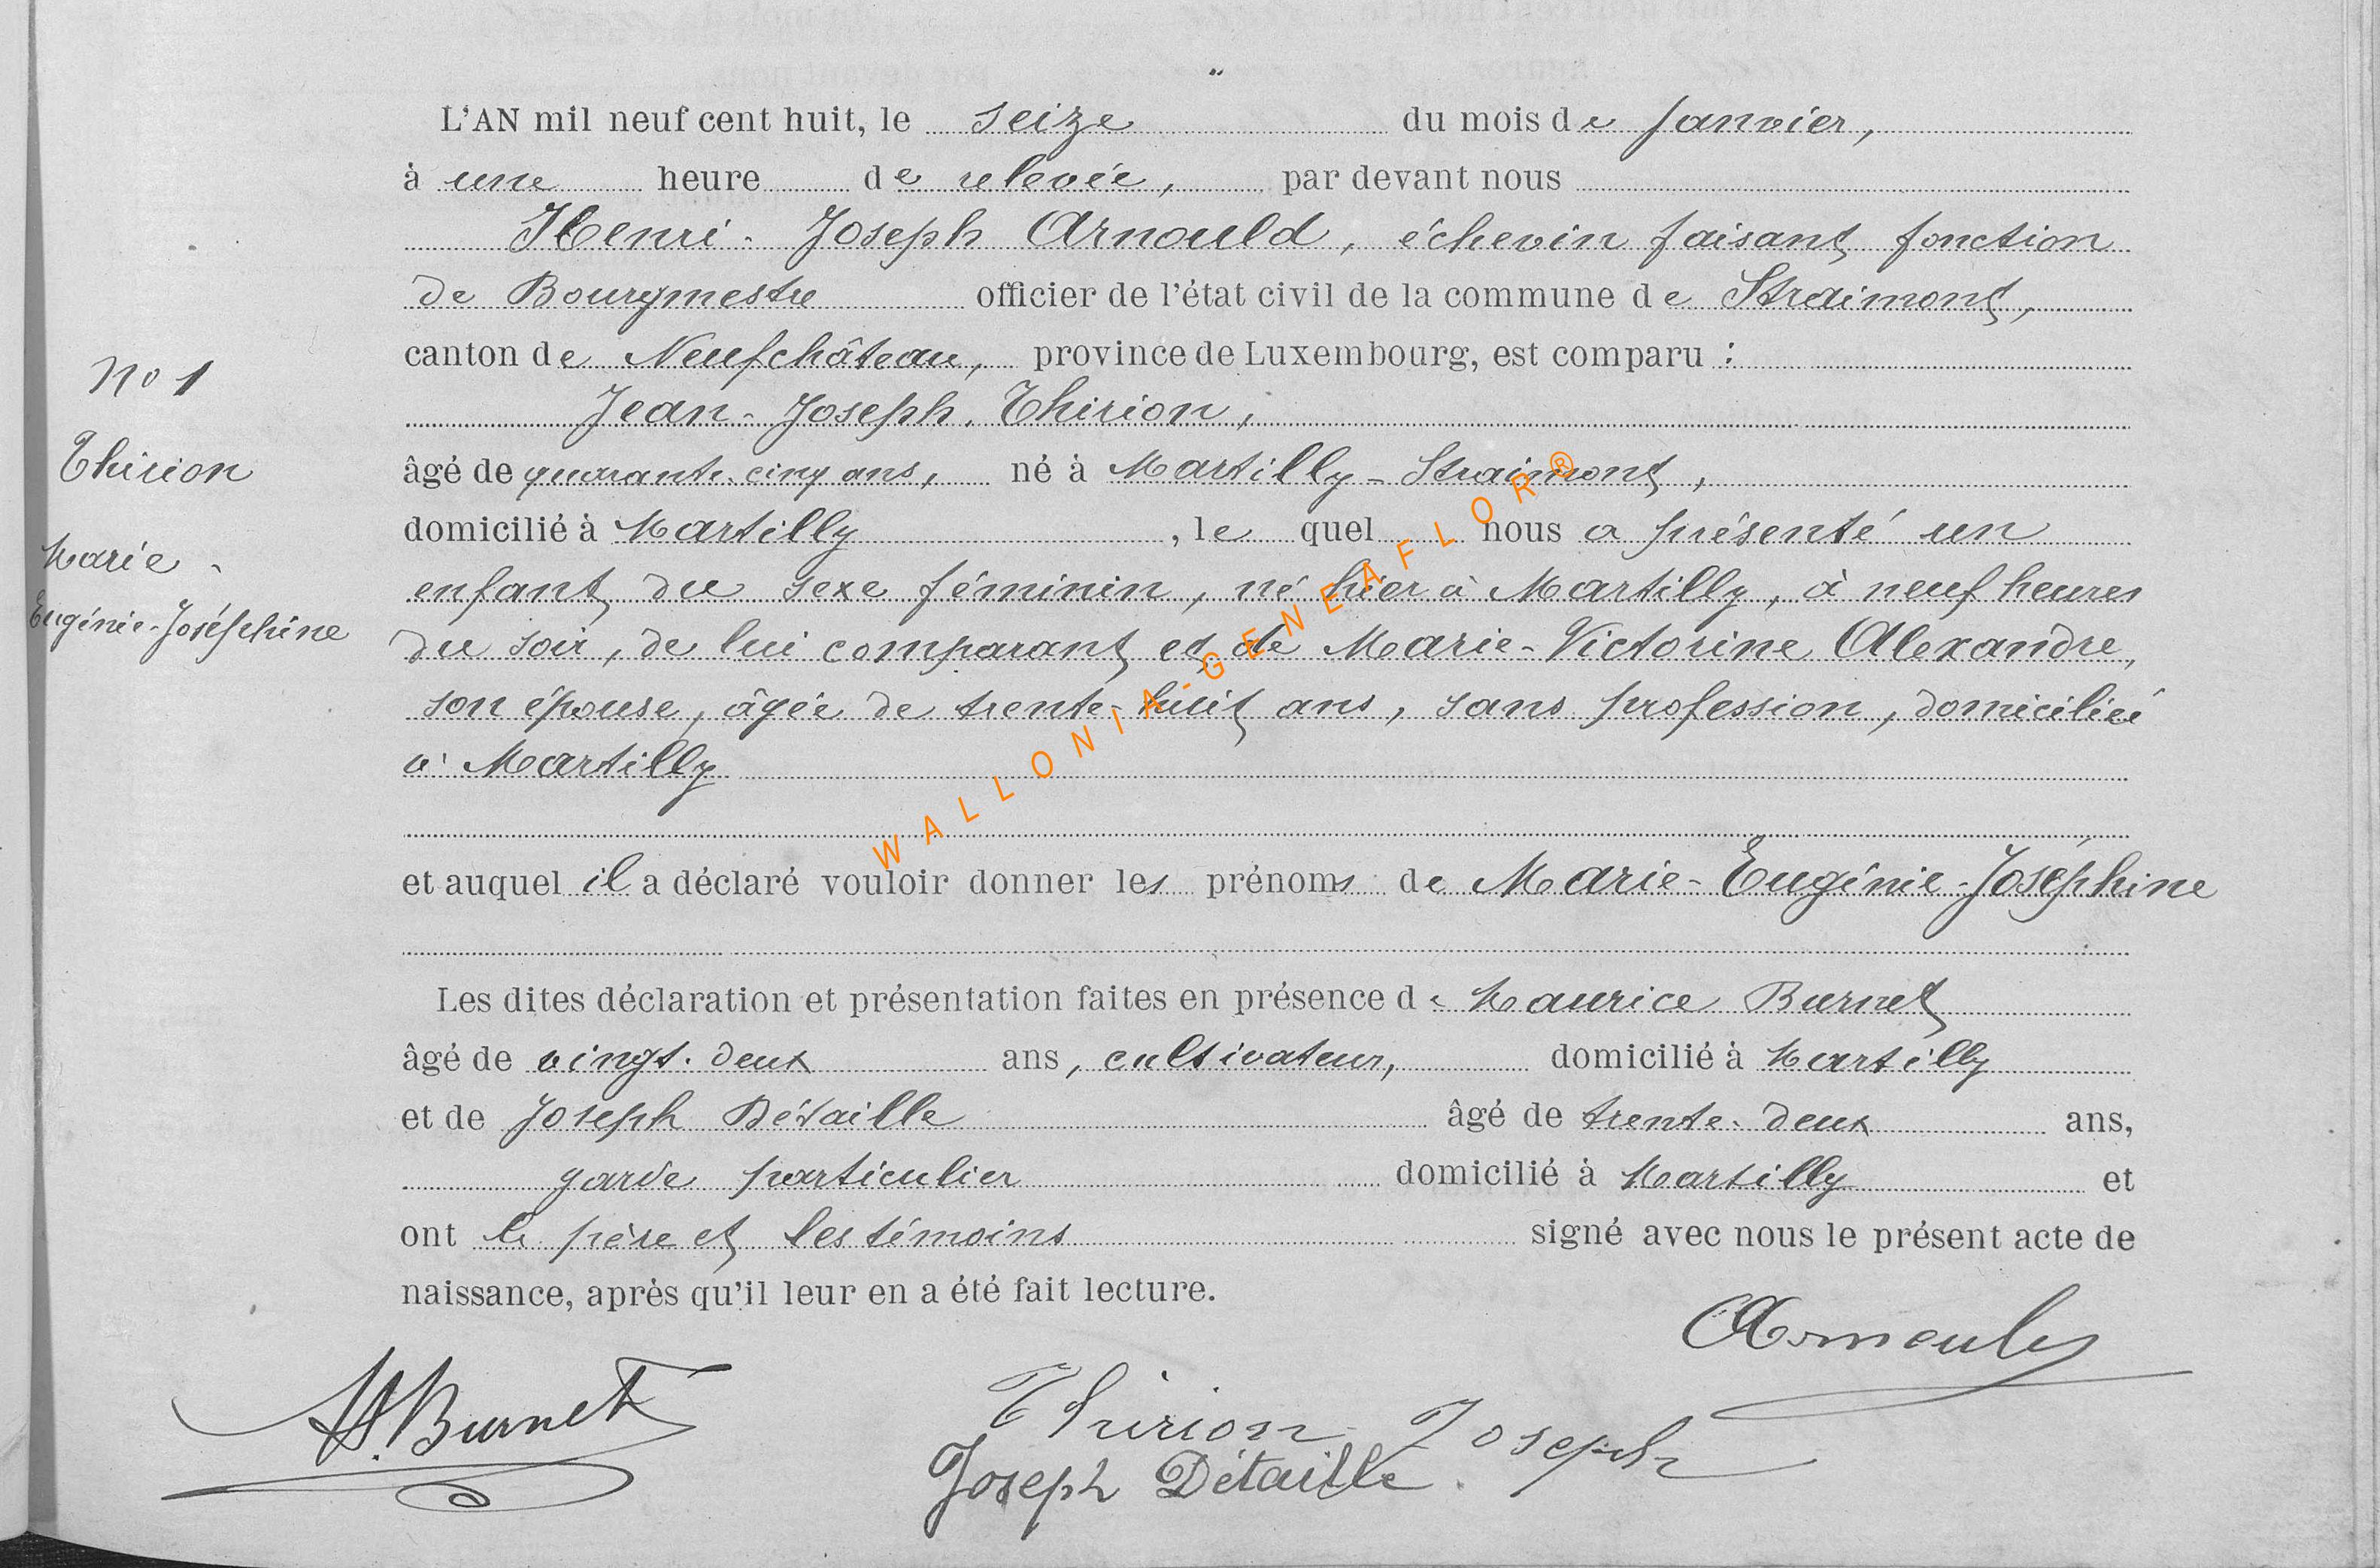 L'AN mil neuf cent huit, le seize du mois de Janvier,
à une heure de relevée, par devant nous
Henri-Joseph Arnould, échevin faisant fonction
de Bourgmestre officier de l'état civil de la commune de Straimont,
canton de Neufchâteau, province de Luxembourg, est comparu :
Jean-Joseph Thirion,
âgé de quarante-cinq ans, né à Martilly-Straimont,
domicilié à Martilly, le quel nous a présenté un
enfant du sexe féminin, né hier à Martilly, à neuf heures
du soir, de lui comparant et de Marie-Victorine Alexandre,
son épouse, âgée de trente-huit ans, sans profession, domiciliée
à Martilly
et auquel il a déclaré vouloir donner les prénoms de Marie-Eugénie-Joséphine
Les dites déclaration et présentation faites en présence de Maurice Burnet
âgé de vingt-deux ans, cultivateur, domicilié à Martilly
et de Joseph Détaille âgé de trente-deux ans,
garde particulier domicilié à Martilly et
ont le père et les témoins signé avec nous le présent acte de
naissance, après qu'il leur en a été fait lecture.
No 1
Thirion
Marie-
Eugénie-Joséphine
WALLONIA-GENEAFLOR®
Arnould
M. Burnet
Thirion Joseph
Joseph Détaille